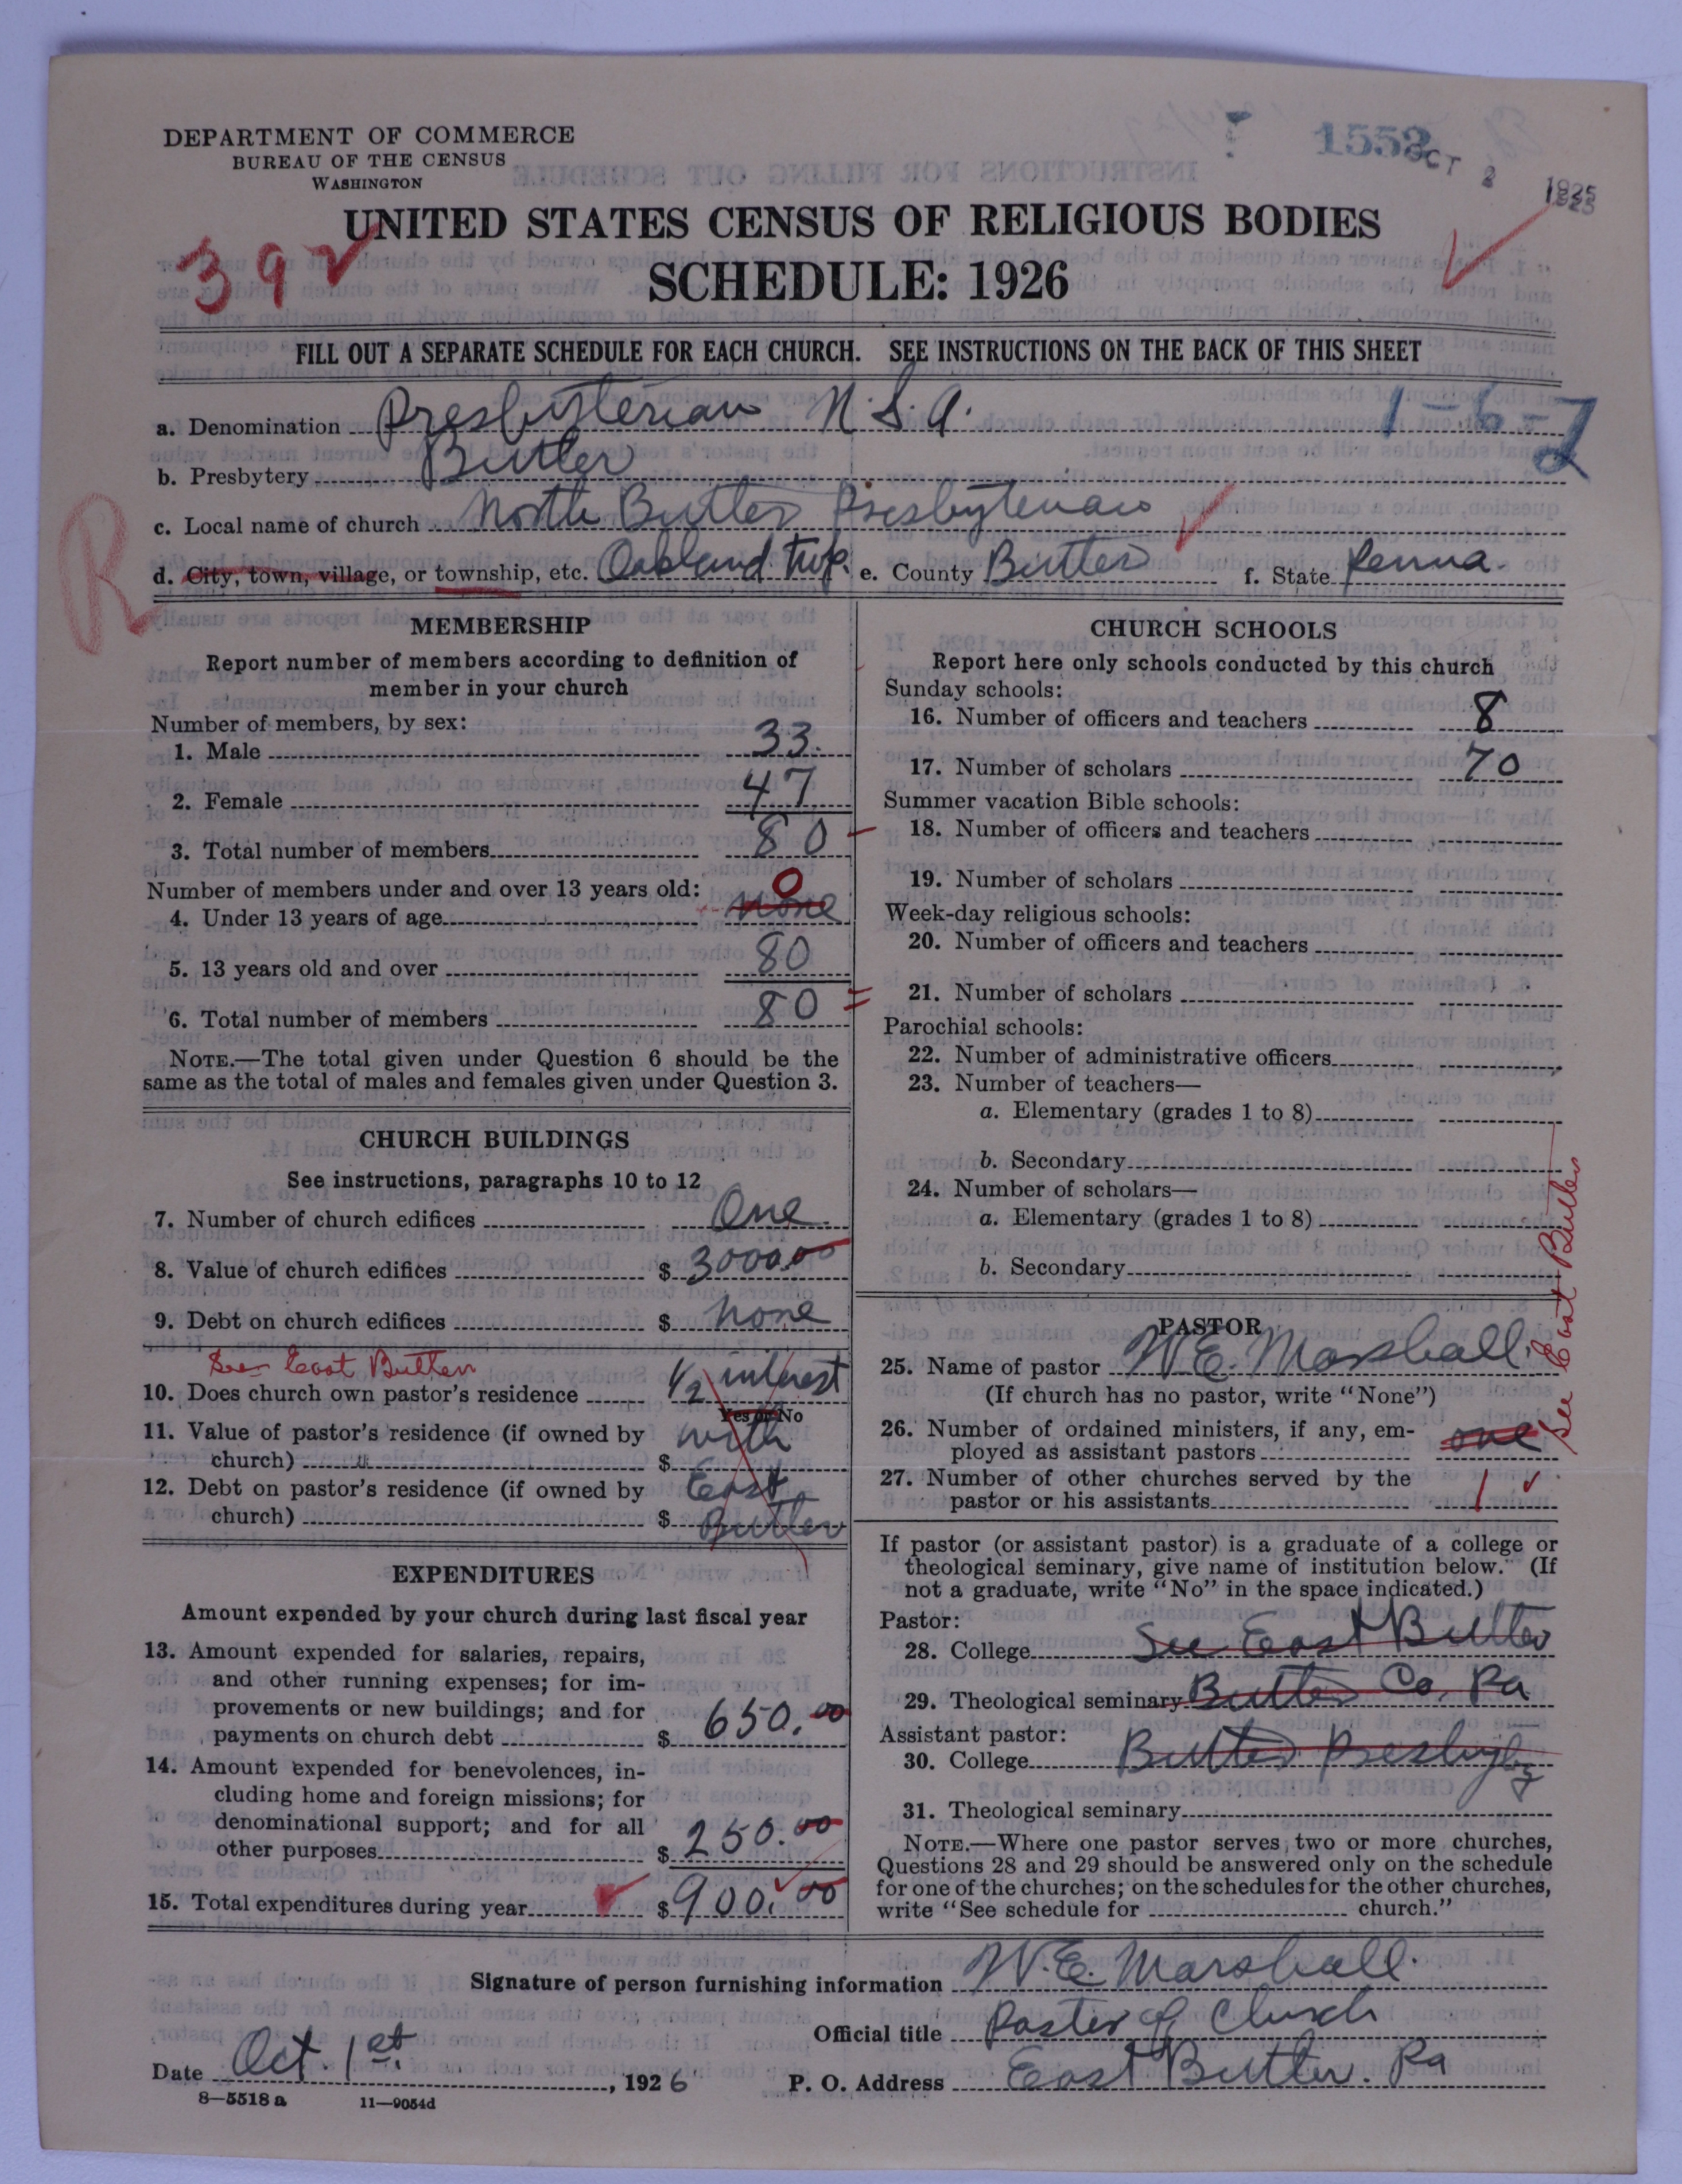 DEPARTMENT OF COMMERCE
BUREAU OF THE CENSUS
WASHINGTON
1552
OCT 2
UNITED STATES CENSUS OF RELIGIOUS BODIES
392
SCHEDULE: 1926
FILL OUT A SEPARATE SCHEDULE FOR EACH CHURCH. SEE INSTRUCTIONS ON THE BACK OF THIS SHEET
a. Denomination Presbyterian U.S.A. 1-6-2
b. Presbytery Butler
c. Local name of church North Butler Presbyterian
R
d. City, town, village, or township, etc. Oakland twp. e. County Butler f. State Penna.
MEMBERSHIP
Report number of members according to definition of
member in your church
Number of members, by sex:
1. Male 33.
2. Female 47
3. Total number of members 80
Number of members under and over 13 years old: 0
4. Under 13 years of age none
5. 13 years old and over 80
6. Total number of members 80
NOTE.—The total given under Question 6 should be the
same as the total of males and females given under Question 3.
CHURCH BUILDINGS
See instructions, paragraphs 10 to 12
7. Number of church edifices One
8. Value of church edifices $ 3000.00
9. Debt on church edifices $ none
See East Butler
10. Does church own pastor's residence 1/2 interest
Yes or No
11. Value of pastor's residence (if owned by with
church) $
12. Debt on pastor's residence (if owned by East
church) $ Butler
EXPENDITURES
Amount expended by your church during last fiscal year
13. Amount expended for salaries, repairs,
and other running expenses; for im-
provements or new buildings; and for
payments on church debt $ 650.00
14. Amount expended for benevolences, in-
cluding home and foreign missions; for
denominational support; and for all
other purposes $ 250.00
15. Total expenditures during year $ 900.00
CHURCH SCHOOLS
Report here only schools conducted by this church
Sunday schools:
16. Number of officers and teachers 8
17. Number of scholars 70
Summer vacation Bible schools:
18. Number of officers and teachers
19. Number of scholars
Week-day religious schools:
20. Number of officers and teachers
21. Number of scholars
Parochial schools:
22. Number of administrative officers
23. Number of teachers—
a. Elementary (grades 1 to 8)
b. Secondary
24. Number of scholars—
a. Elementary (grades 1 to 8)
b. Secondary
See East Butler
PASTOR
25. Name of pastor W. E. Marshall.
(If church has no pastor, write "None")
26. Number of ordained ministers, if any, em-
ployed as assistant pastors one
27. Number of other churches served by the
pastor or his assistants 1
If pastor (or assistant pastor) is a graduate of a college or
theological seminary, give name of institution below. (If
not a graduate, write "No" in the space indicated.)
Pastor:
28. College See East Butler
29. Theological seminary Butler Co. Pa
Assistant pastor:
30. College Butler Presbytery
31. Theological seminary
NOTE.—Where one pastor serves two or more churches,
Questions 28 and 29 should be answered only on the schedule
for one of the churches; on the schedules for the other churches,
write "See schedule for church."
Signature of person furnishing information W. E. Marshall.
Official title Pastor of Church
Date Oct. 1st. , 1926 P. O. Address East Butler. Pa
8—5518 a 11—9054d